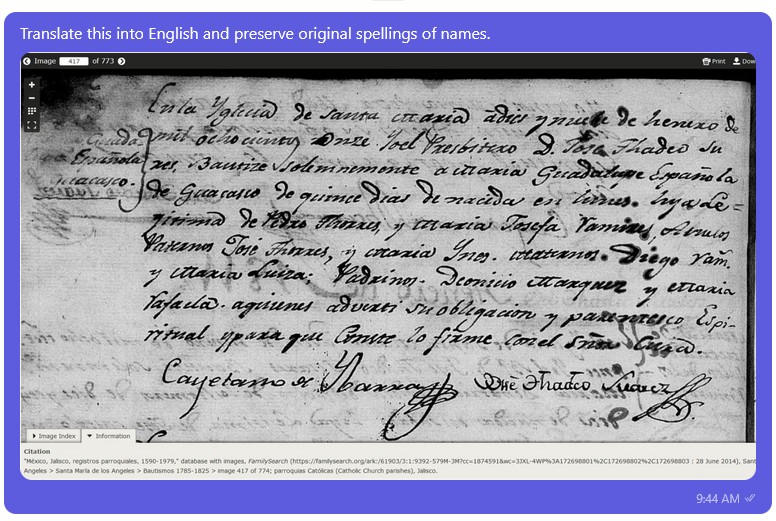 Translate this into English and preserve original spellings of names.
Image 417 of 773
Print
Dow
En la Yglesia de santa maria a dies y nueve de henero de
mil ochocientos onze Yo el Presbitero D. José Thadeo Su
res, Bautize solemnemente a maria Guadalupe Española
de Guacasco de quince dias de nacida en lunes. hija Le=
gitima de Pedro Thorres, y maria Josefa Ramires, Abuelos
Paternos José Thorres, y maria Ynes. maternos. Diego Ram.
y maria Luiza; Padrinos. Deonicio Marquez y maria
Rafaela. aquienes adverti su obligacion y parentesco Espi-
ritual y para que Conste lo firme con el Señor Cura.
Guada
Española
Guacasco.
Cayetano de Ybarra
José Thadeo Suarez
Image Index
Information
Citation
"México, Jalisco, registros parroquiales, 1590-1979," database with images, FamilySearch (https://familysearch.org/ark:/61903/3:1:9392-579M-3M?cc=1874591&wc=3JXL-4WP%3A172698801%2C172698802%2C172698803 : 28 June 2014), Sant
Angeles > Santa María de los Angeles > Bautismos 1785-1825 > image 417 of 774; parroquias Católicas (Catholic Church parishes), Jalisco.
9:44 AM